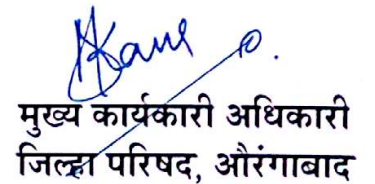 मुख्य कार्यकारी अधिकारी
जिल्हा परिषद, औरंगाबाद